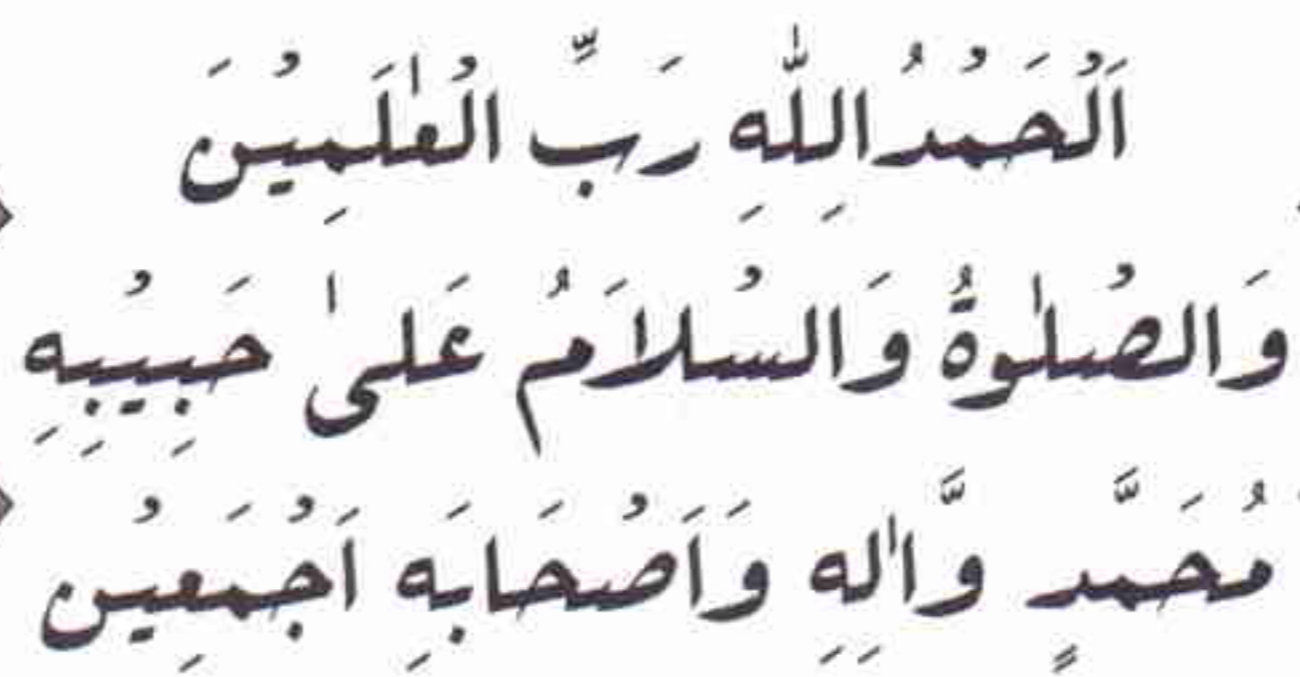 اَلْحَمْدُاللّٰهِ رَبِّ الْعٰلَمِيْنَ
وَالصْلٰوةُ وَالسْلاَمُ عَلىٰ حَبِيْبِهِ
مُحَمَّدٍ وَّاٰلِهِ وَاَصْحَابَهِ اَجْمَعِيْن